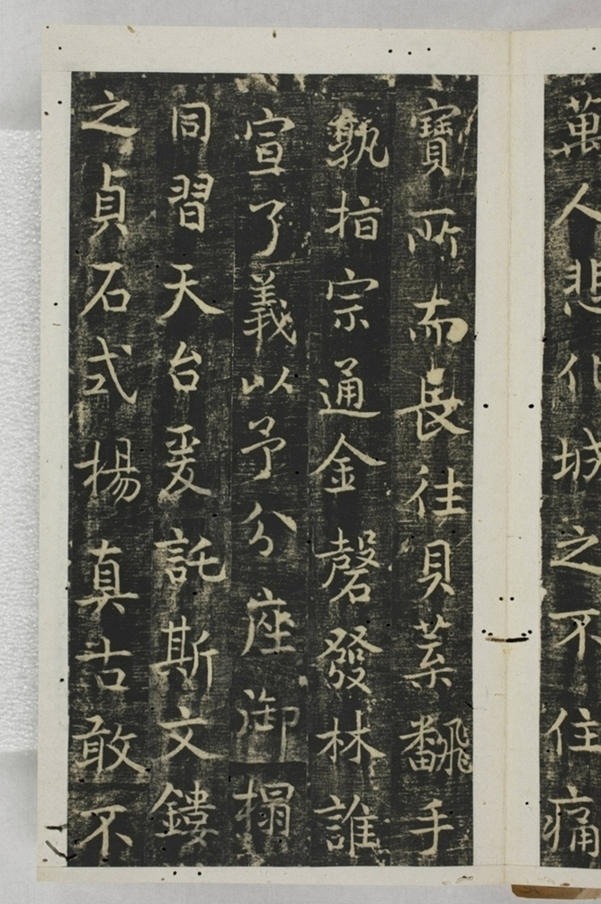 萬人悲化城之不住痛
寶所而長往貝葉翻手
孰指宗通金磬發林誰
宣了義以予分座御榻
同習天台爰託斯文鏤
之貞石式揚真古敢不